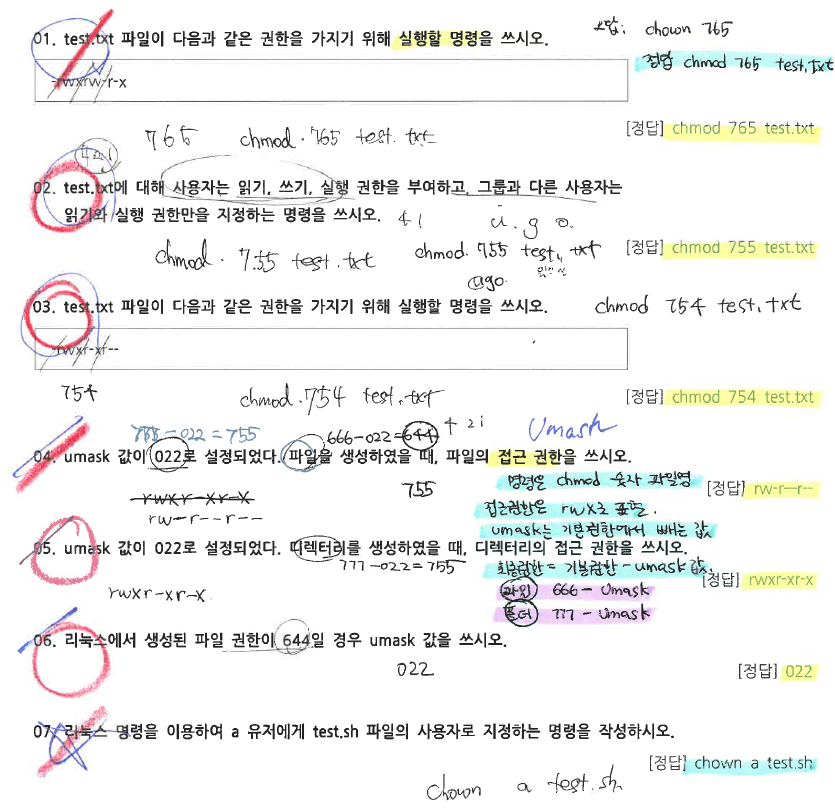 01. test.txt 파일이 다음과 같은 권한을 가지기 위해 실행할 명령을 쓰시오.
오답: chown 765
정답 chmod 765 test.txt
-rwxrw-r-x
765 chmod. 765 test.txt
[정답] chmod 765 test.txt
421
02. test.txt에 대해 사용자는 읽기, 쓰기, 실행 권한을 부여하고, 그룹과 다른 사용자는
읽기와 실행 권한만을 지정하는 명령을 쓰시오.
41 u. g o.
chmod. 755 test.txt
chmod. 755 test. txt
[정답] chmod 755 test.txt
ugo.
03. test.txt 파일이 다음과 같은 권한을 가지기 위해 실행할 명령을 쓰시오.
chmod 754 test.txt
-rwxr-xr--
754 chmod.754 test.txt
[정답] chmod 754 test.txt
-022=755
666-022=644
421
Umask
04. umask 값이 022로 설정되었다. 파일을 생성하였을 때, 파일의 접근 권한을 쓰시오.
755
명령은 chmod 숫자 파일명
[정답] rw-r—r--
rwxr-xr-x
rw-r--r---
접근권한은 rwx로 표현.
umask는 기본권한에서 빼는 값
05. umask 값이 022로 설정되었다. 디렉터리를 생성하였을 때, 디렉터리의 접근 권한을 쓰시오.
777-022=755
최종권한 = 기본권한 - umask 값.
[정답] rwxr-xr-x
rwxr-xr-x
파일 666 - Umask
폴더 777 - Umask
06. 리눅스에서 생성된 파일 권한이 644일 경우 umask 값을 쓰시오.
022
[정답] 022
07. 리눅스 명령을 이용하여 a 유저에게 test.sh 파일의 사용자로 지정하는 명령을 작성하시오.
[정답] chown a test.sh
chown a test.sh